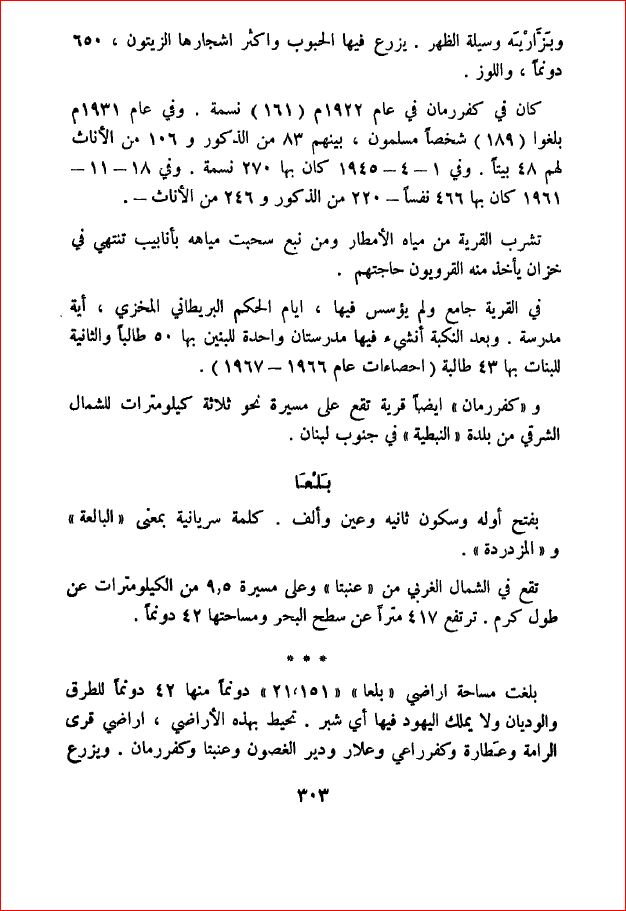 وبَزَّارْيَة وسيلة الظهر . يزرع فيها الحبوب واكثر اشجارها الزيتون ، ٦٥٠
دونماً ، واللوز .
كان في كفررمان في عام ١٩٢٢م (١٦١) نسمة . وفي عام ١٩٣١م
بلغوا (١٨٩) شخصاً مسلمون ، بينهم ٨٣ من الذكور و ١٠٦ من الأناث
لهم ٤٨ بيتاً . وفي ١ – ٤ – ١٩٤٥ كان بها ٢٧٠ نسمة . وفي ١٨ – ١١ –
١٩٦١ كان بها ٤٦٦ نفساً – ٢٢٠ من الذكور و ٢٤٦ من الأناث – .
تشرب القرية من مياه الأمطار ومن نبع سحبت مياهه بأنابيب تنتهي في
خزان يأخذ منه القرويون حاجتهم .
في القرية جامع ولم يؤسس فيها ، ايام الحكم البريطاني المخزي ، أية
مدرسة . وبعد النكبة أنشيء فيها مدرستان واحدة للبنين بها ٥٠ طالباً والثانية
للبنات بها ٤٣ طالبة (احصاءات عام ١٩٦٦ – ١٩٦٧) .
و «كفررمان» ايضاً قرية تقع على مسيرة نحو ثلاثة كيلومترات للشمال
الشرقي من بلدة «النبطية» في جنوب لبنان .
بَلْعَا
بفتح أوله وسكون ثانيه وعين وألف . كلمة سريانية بمعنى «البالعة»
و «المزدردة» .
تقع في الشمال الغربي من «عنبتا» وعلى مسيرة ٩,٥ من الكيلومترات عن
طول كرم . ترتفع ٤١٧ متراً عن سطح البحر ومساحتها ٤٢ دونماً .
* * *
بلغت مساحة اراضي «بلعا» «٢١،١٥١» دونماً منها ٤٢ دونماً للطرق
والوديان ولا يملك اليهود فيها أي شبر . تحيط بهذه الأراضي ، اراضي قرى
الرامة وعَطارة وكفرراعي وعلار ودير الغصون وعنبتا وكفررمان . ويزرع
٣٠٣